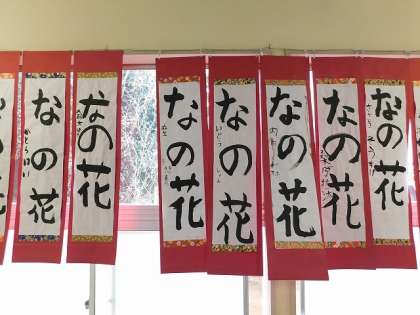 なの花
なの花
なの花
なの花
なの花
なの花
なの花